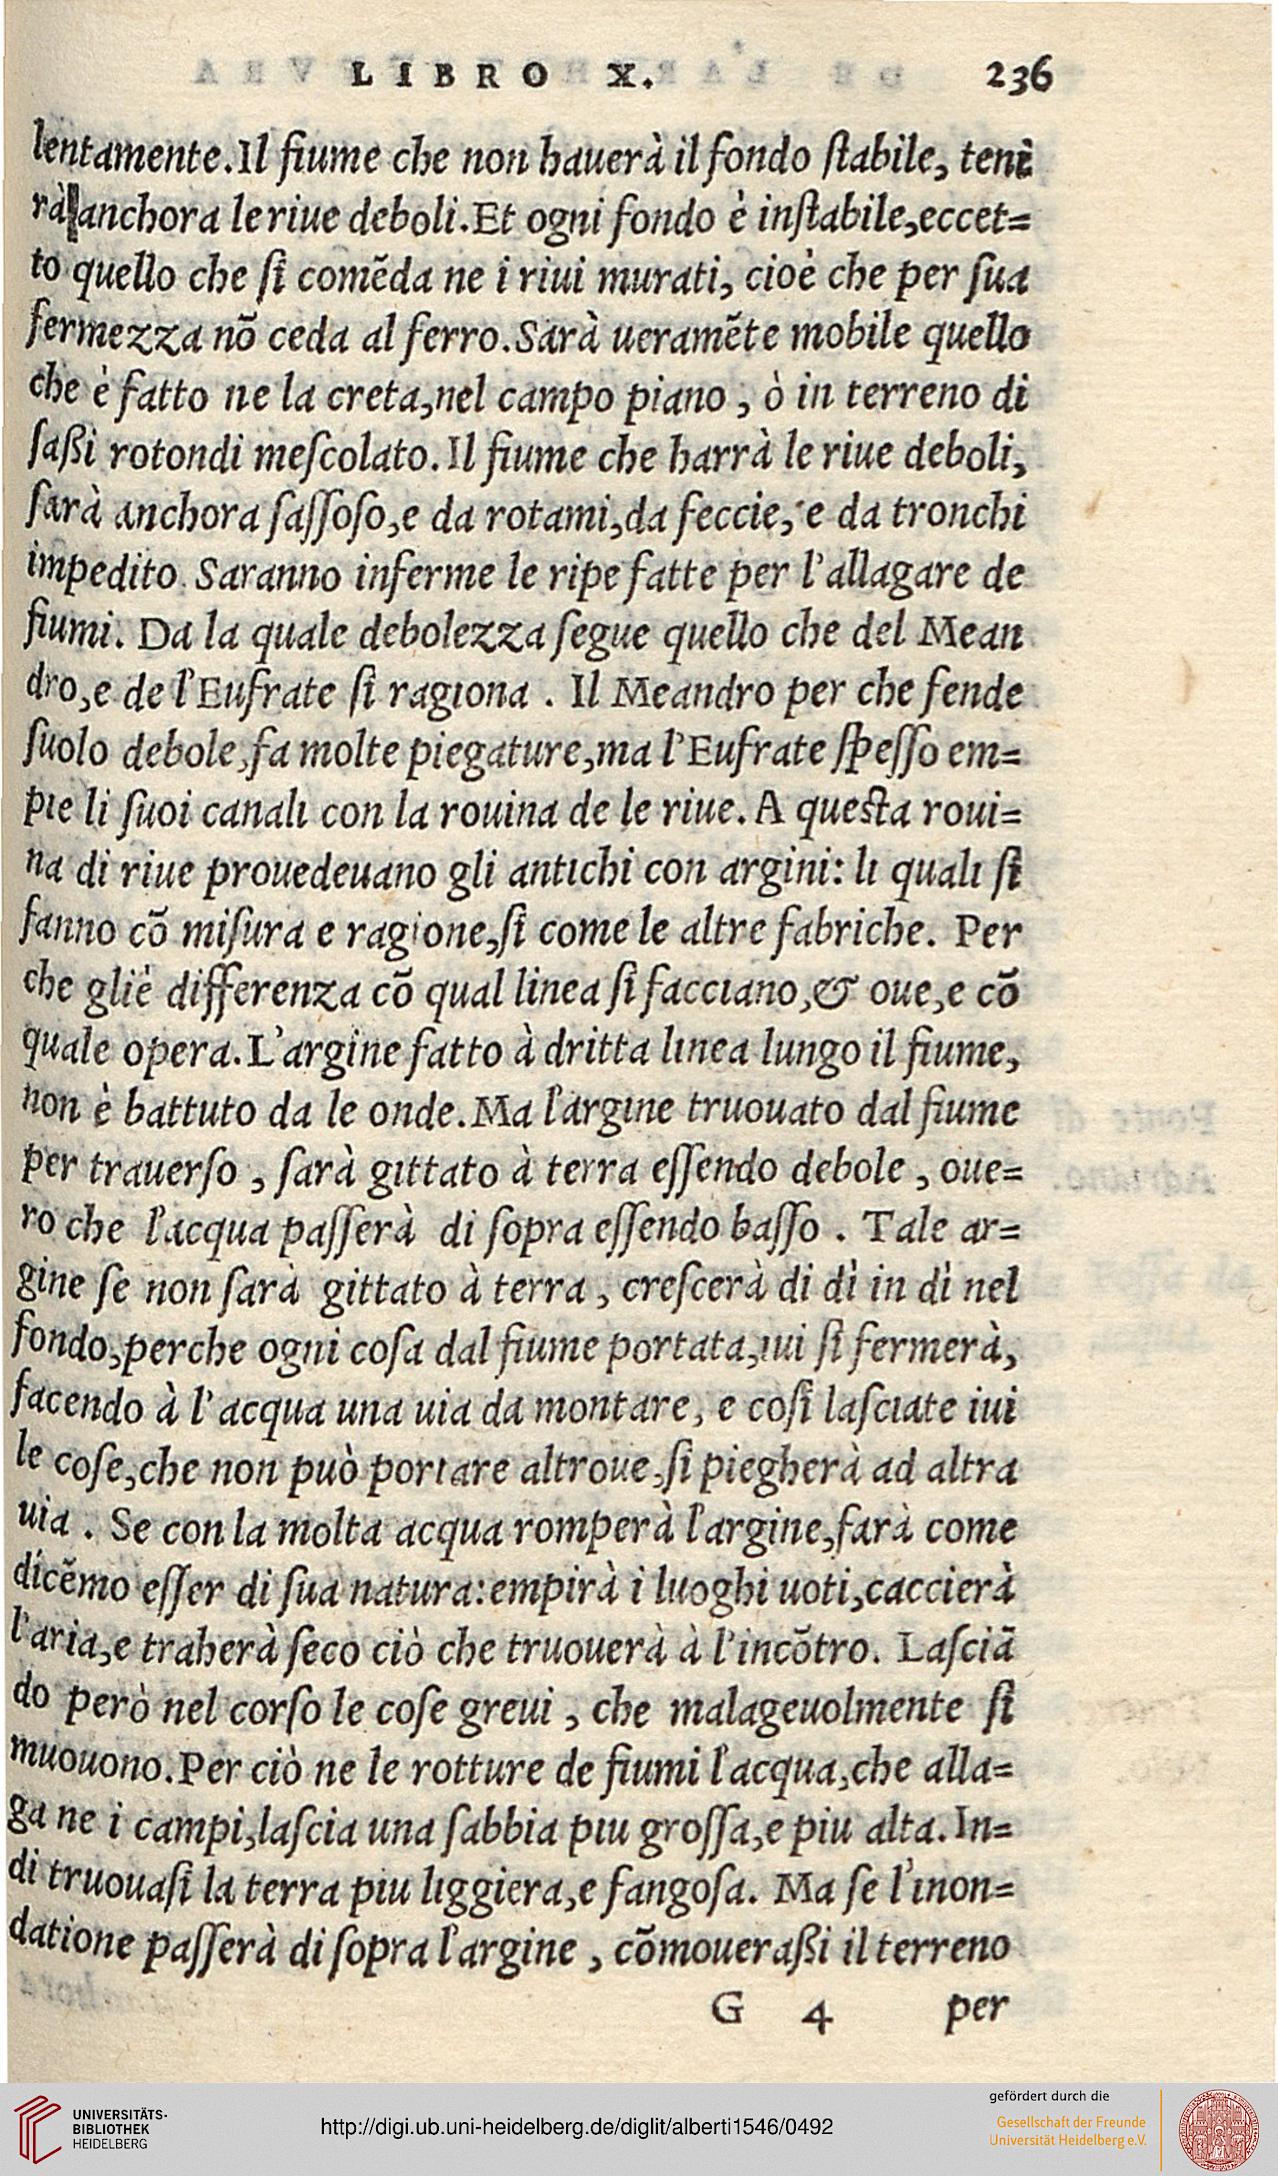 LIBRO X. 236
lentamente. Il fiume che non hauerà il fondo ſtabile, tene
rà anchora le riue deboli. Et ogni fondo è inſtabile, eccet=
to quello che ſi comẽda ne i riui murati, cioè che per ſua
fermezza nõ ceda al ferro. Sarà ueramẽte mobile quello
che è fatto ne la creta, nel campo piano, ò in terreno di
ſaßi rotondi meſcolato. Il fiume che harrà le riue deboli,
ſarà anchora ſaſſoſo, e da rotami, da feccie, e da tronchi
impedito. Saranno inferme le ripe fatte per l'allagare de
fiumi. Da la quale debolezza ſegue quello che del Mean
dro, e de l'Eufrate ſi ragiona. Il Meandro per che fende
ſuolo debole, fa molte piegature, ma l'Eufrate ſpeſſo em=
pie li ſuoi canali con la rouina de le riue. A queſta roui=
na di riue prouedeuano gli antichi con argini: li quali ſi
fanno cõ miſura e ragione, ſi come le altre fabriche. Per
che gliè differenza cõ qual linea ſi facciano, & oue, e cõ
quale opera. L'argine fatto à dritta linea lungo il fiume,
non è battuto da le onde. Ma l'argine truouato dal fiume
per trauerſo, ſarà gittato à terra eſſendo debole, oue=
ro che l'acqua paſſerà di ſopra eſſendo baſſo. Tale ar=
gine ſe non ſarà gittato à terra, creſcerà di dì in dì nel
fondo, perche ogni coſa dal fiume portata, iui ſi fermerà,
facendo à l'acqua una uia da montare, e coſi laſciate iui
le coſe, che non può portare altroue, ſi piegherà ad altra
uia. Se con la molta acqua romperà l'argine, farà come
dicẽmo eſſer di ſua natura: empirà i luoghi uoti, caccierà
l'aria, e traherà ſeco ciò che truouerà à l'incõtro. Laſciã
do però nel corſo le coſe greui, che malageuolmente ſi
muouono. Per ciò ne le rotture de fiumi l'acqua, che alla=
ga ne i campi, laſcia una ſabbia piu groſſa, e piu alta. In=
di truouaſi la terra piu liggiera, e fangoſa. Ma ſe l'inon=
datione paſſerà di ſopra l'argine, cõmoueraßi il terreno
G 4 per
UNIVERSITÄTS-
BIBLIOTHEK
HEIDELBERG
http://digi.ub.uni-heidelberg.de/diglit/alberti1546/0492
gefördert durch die
Gesellschaft der Freunde
Universität Heidelberg e.V.